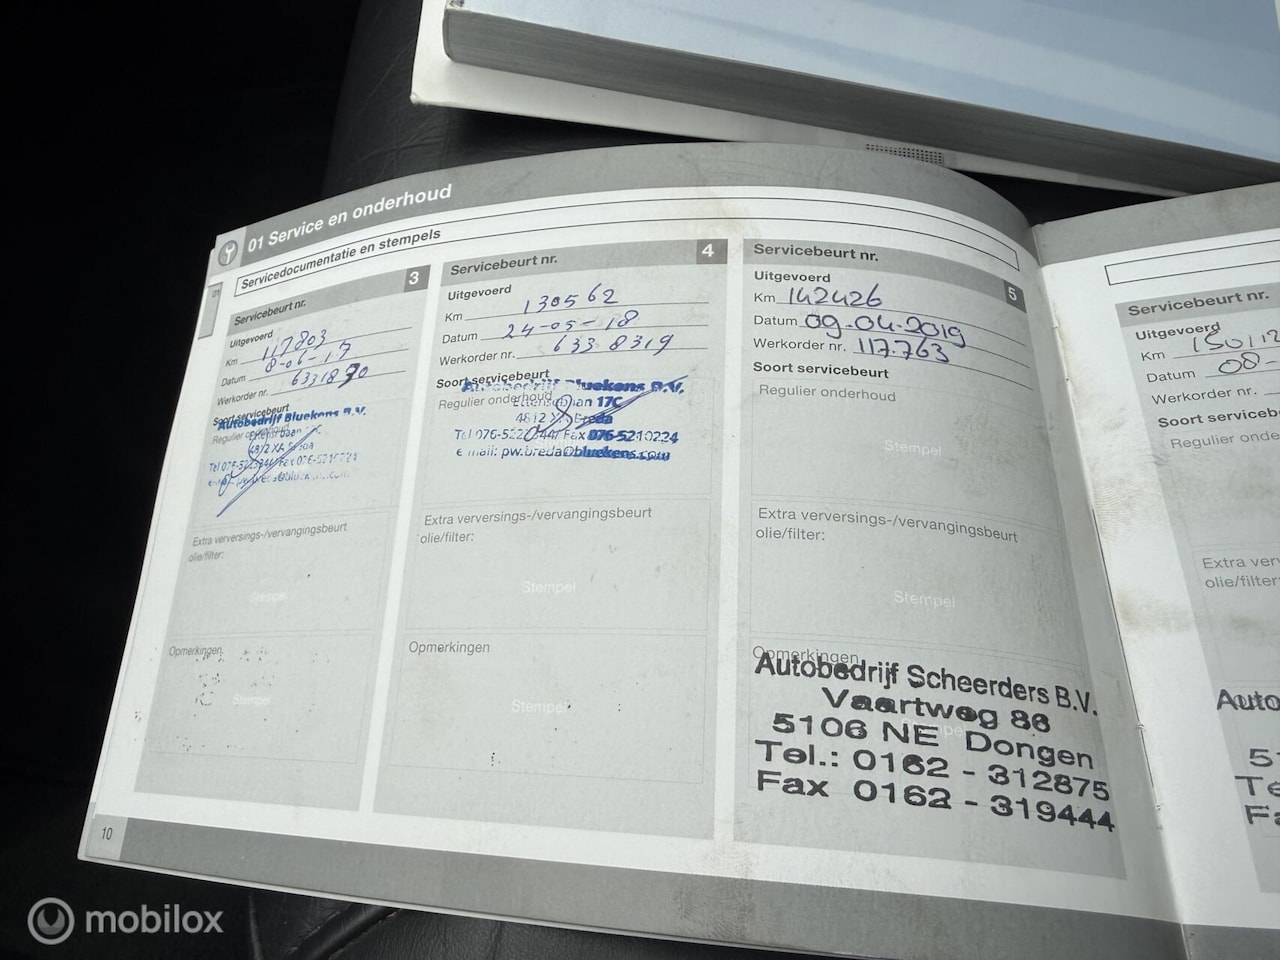 01 Service en onderhoud
Servicedocumentatie en stempels
01
Servicebeurt nr. 3
Uitgevoerd
Km 117803
Datum 8-06-17
Werkorder nr. 6331870
Soort servicebeurt
Autobedrijf Bluekens B.V.
Regulier onderhoud
4812 XA Breda
Extra verversings-/vervangingsbeurt
olie/filter:
Stempel
Opmerkingen
Stempel
Servicebeurt nr. 4
Uitgevoerd
Km 130562
Datum 24-05-18
Werkorder nr. 6338319
Soort servicebeurt
Autobedrijf Bluekens B.V.
Regulier onderhoud
17C
4812 XA Breda
Fax 076-5210224
e-mail: pw.breda@bluekens.com
Extra verversings-/vervangingsbeurt
olie/filter:
Stempel
Opmerkingen
Stempel
Servicebeurt nr. 5
Uitgevoerd
Km 142426
Datum 09-04-2019
Werkorder nr. 117.763
Soort servicebeurt
Regulier onderhoud
Stempel
Extra verversings-/vervangingsbeurt
olie/filter:
Stempel
Opmerkingen
Autobedrijf Scheerders B.V.
Vaartweg 86
5106 NE Dongen
Tel.: 0162 - 312875
Fax 0162 - 319444
10
Servicebeurt nr.
Uitgevoerd
Km
Datum 08-
Werkorder nr.
Soort serviceb
Regulier onde
Extra ver
olie/filter
Auto
51
Te
Fa
mobilox